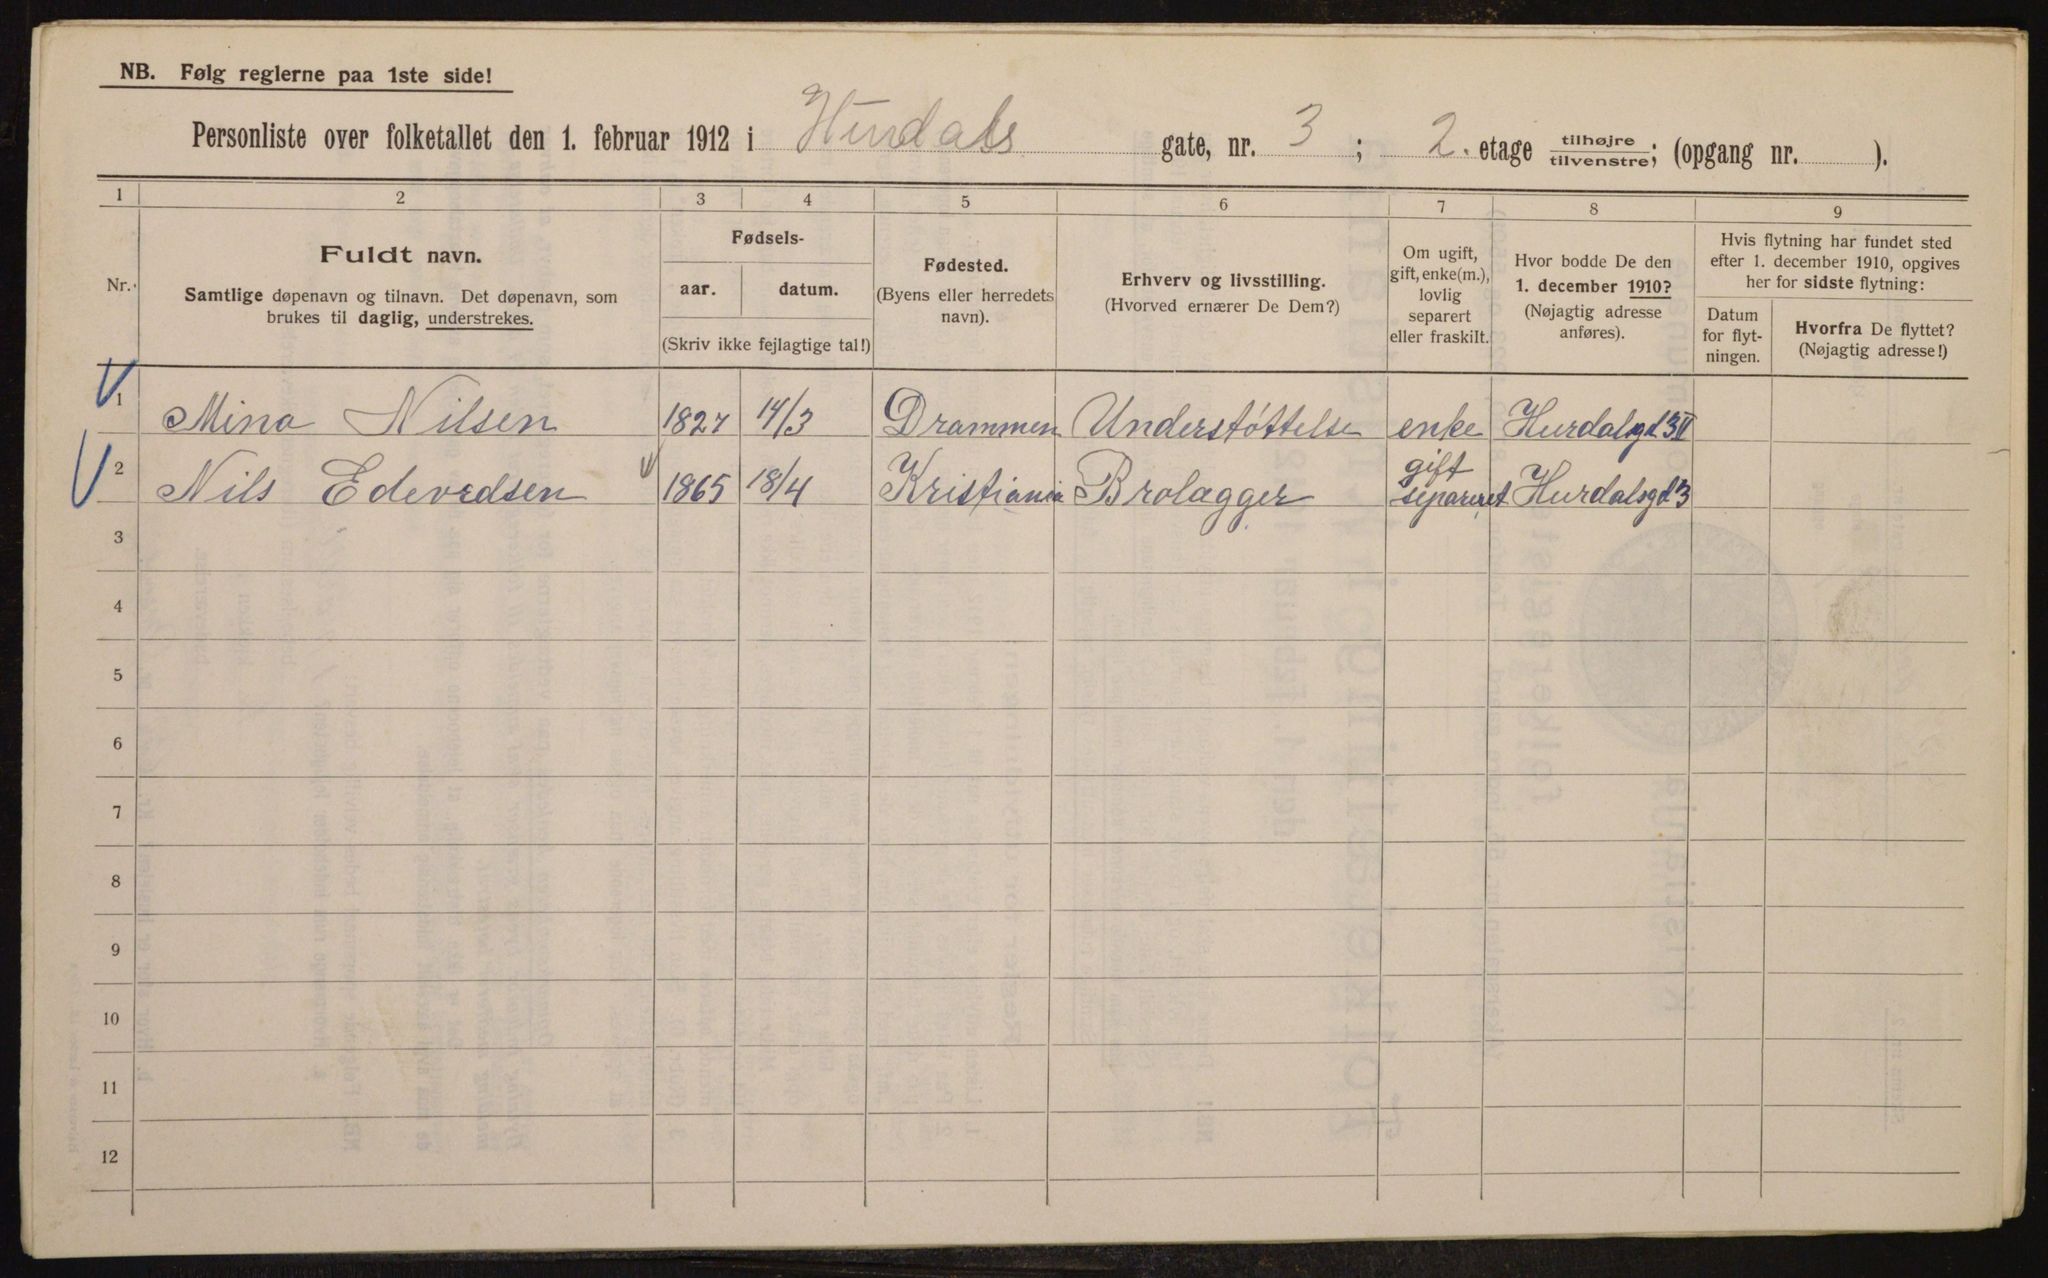 NB. Følg reglerne paa 1ste side!
Personliste over folketallet den 1. februar 1912 i Hurdals gate, nr. 3 ; 2. etage tilhøjre/tilvenstre; (opgang nr. ).
1 2 3 4 5 6 7 8 9
Nr.
Fuldt navn.
Samtlige døpenavn og tilnavn. Det døpenavn, som
brukes til daglig, understrekes.
Fødsels-
aar. datum.
(Skriv ikke fejlagtige tal!)
Fødested.
(Byens eller herredets
navn).
Erhverv og livsstilling.
(Hvorved ernærer De Dem?)
Om ugift,
gift, enke(m.),
lovlig
separert
eller fraskilt.
Hvor bodde De den
1. december 1910?
(Nøjagtig adresse
anføres).
Hvis flytning har fundet sted
efter 1. december 1910, opgives
her for sidste flytning:
Datum
for flyt-
ningen.
Hvorfra De flyttet?
(Nøjagtig adresse!)
1 Mina Nilsen 1827 14/3 Drammen Understøttelse enke Hurdalsgd 3 II
2 Nils Edevedsen 1865 18/4 Kristiania Brolægger gift separeret Hurdalsgd 3
3
4
5
6
7
8
9
10
11
12